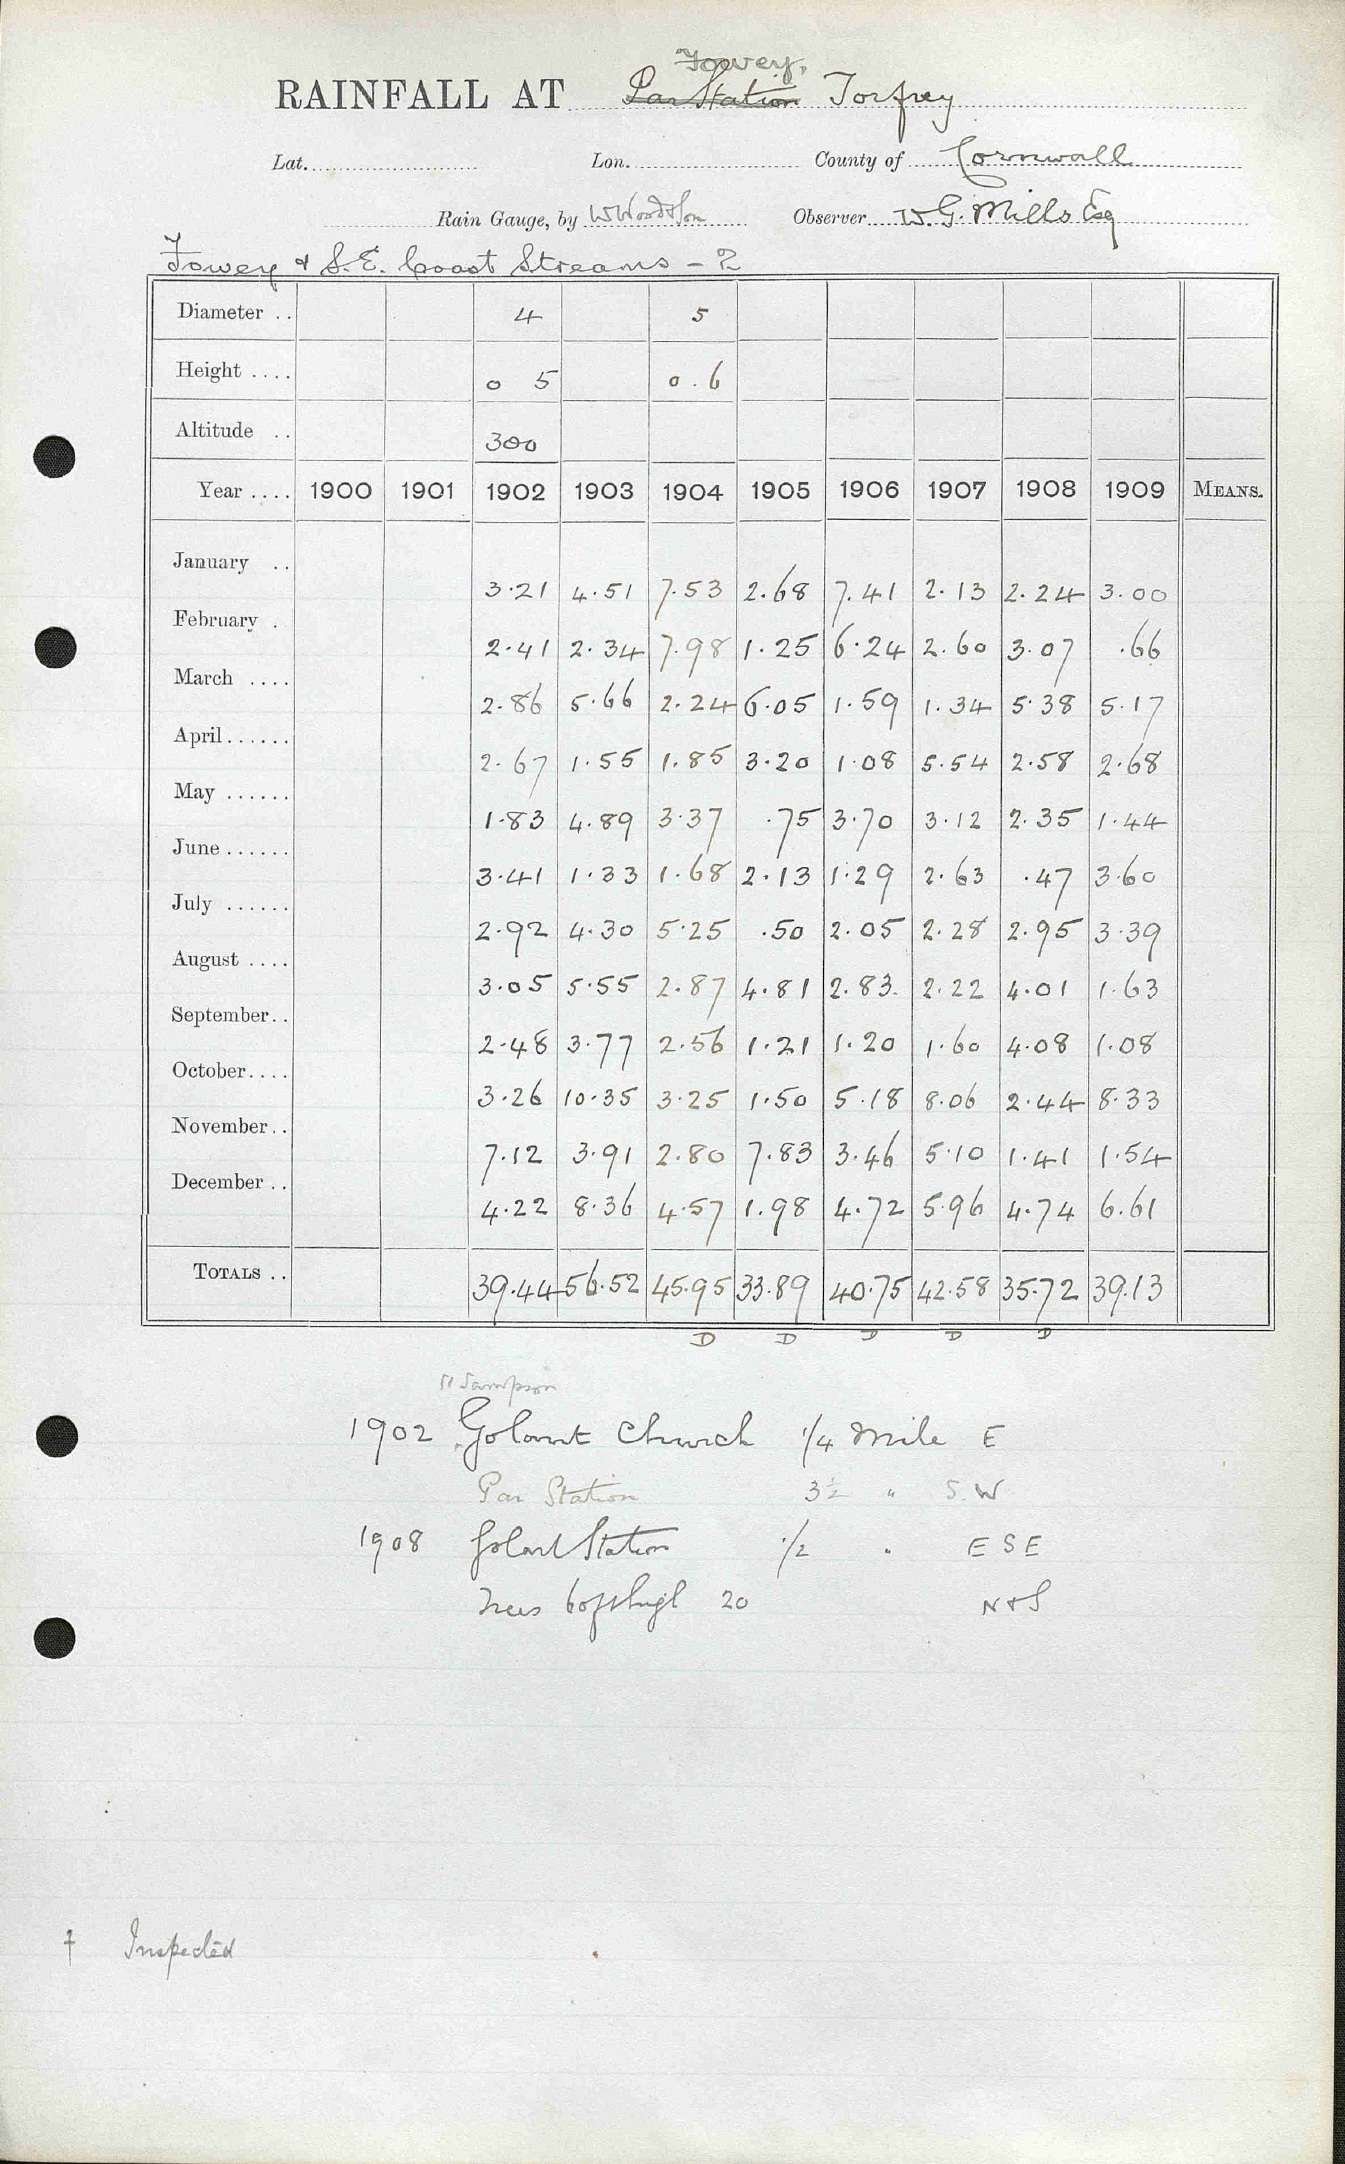 Fowey,
RAINFALL AT Par Station Torfrey
Lat. Lon. County of Cornwall
Rain Gauge, by W Wood & Son Observer W. G. Mills Esq
Fowey & S.E. Coast Streams - 2
Diameter .. 4 5
Height .... 0 5 0.6
Altitude .. 300
Year .... 1900 1901 1902 1903 1904 1905 1906 1907 1908 1909 MEANS.
January .. 3.21 4.51 7.53 2.68 7.41 2.13 2.24 3.00
February . 2.41 2.34 7.98 1.25 6.24 2.60 3.07 .66
March .... 2.86 5.66 2.24 6.05 1.59 1.34 5.38 5.17
April...... 2.67 1.55 1.85 3.20 1.08 5.54 2.58 2.68
May ...... 1.83 4.89 3.37 .75 3.70 3.12 2.35 1.44
June...... 3.41 1.33 1.68 2.13 1.29 2.63 .47 3.60
July ...... 2.92 4.30 5.25 .50 2.05 2.28 2.95 3.39
August .... 3.05 5.55 2.87 4.81 2.83 2.22 4.01 1.63
September.. 2.48 3.77 2.56 1.21 1.20 1.60 4.08 1.08
October.... 3.26 10.35 3.25 1.50 5.18 8.06 2.44 8.33
November.. 7.12 3.91 2.80 7.83 3.46 5.10 1.41 1.54
December .. 4.22 8.36 4.57 1.98 4.72 5.96 4.74 6.61
TOTALS .. 39.44 56.52 45.95 33.89 40.75 42.58 35.72 39.13
D D D D D
Sampson
1902 Golant Church 1/4 Mile E
Par Station 3½ " S.W
1908 Golant Station 1/2 " E S E
Trees 6 ft high 20 N & S
† Inspected